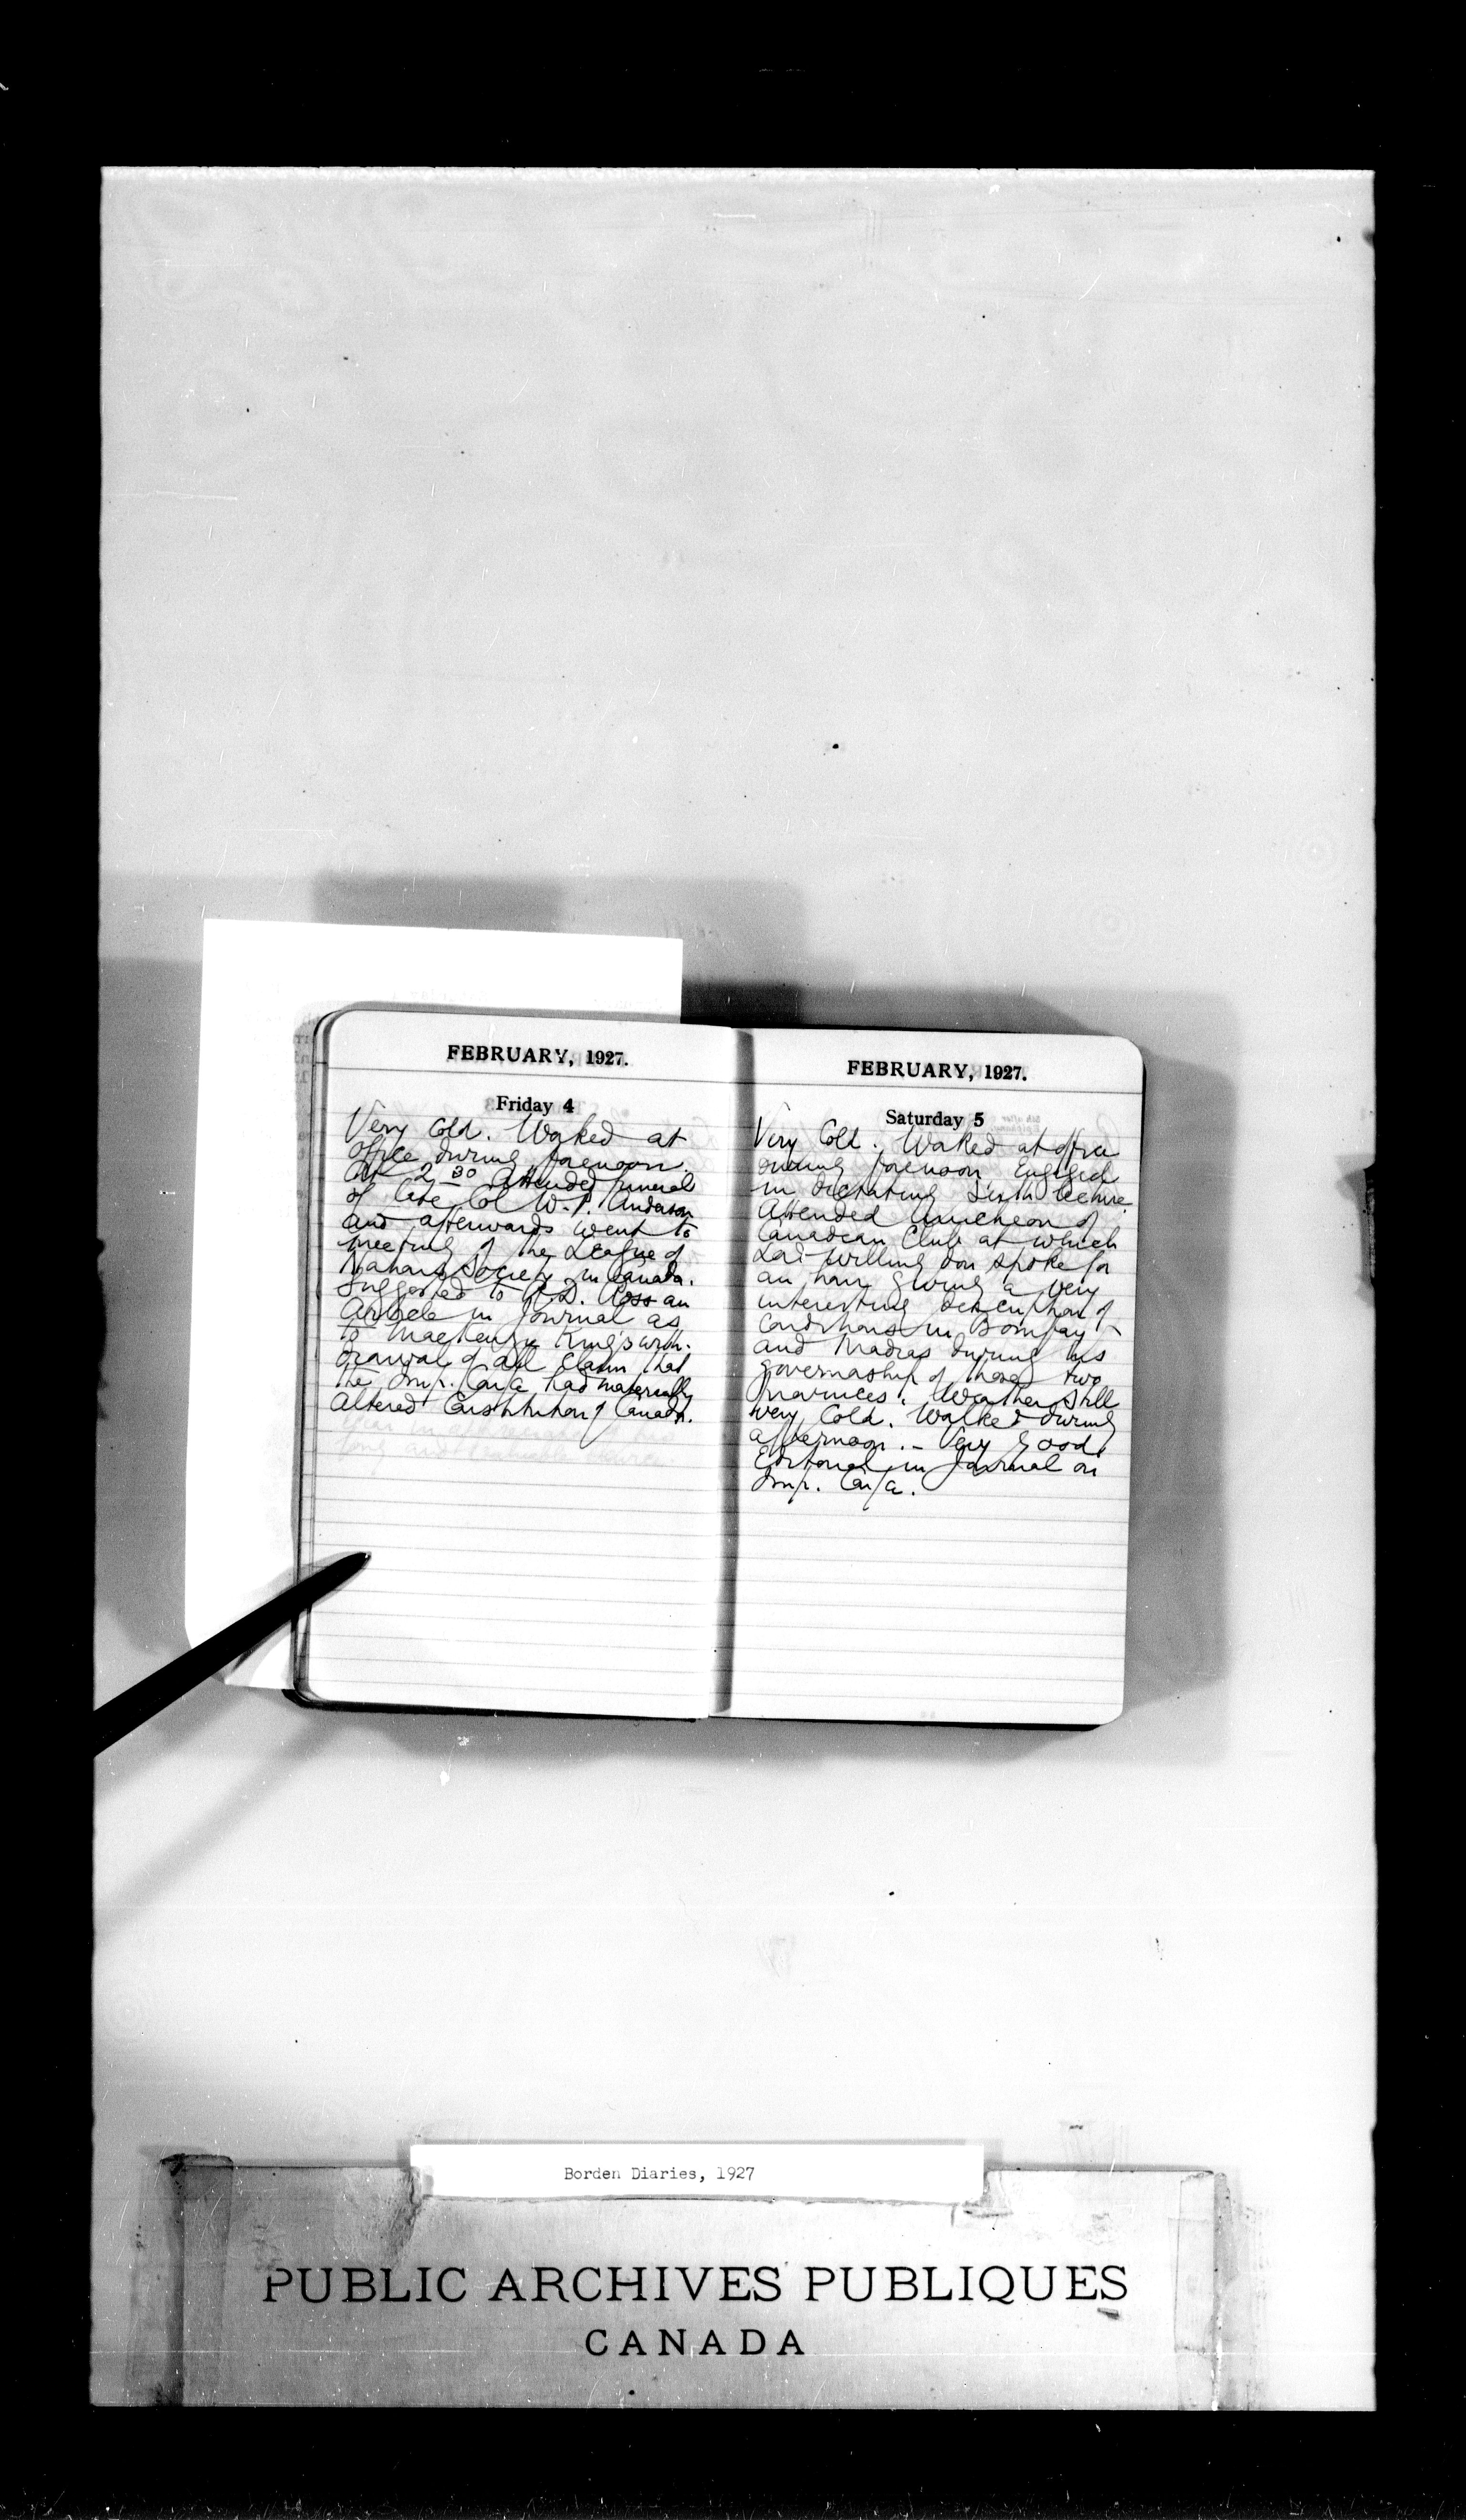 FEBRUARY, 1927.
Friday 4
Very Cold. Worked at
office during forenoon.
At 2 30 attended funeral
of late Col W. P. Anderson
and afterwards went to
meeting of the League of
Nations Society in Canada.
Suggested to P.D. Ross an
Article in Journal as
to Mackenzie King's with-
drawal of all claim that
the Imp. Conf'ce had materially
Altered Constitution of Canada.
FEBRUARY, 1927.
Saturday 5
Very Cold. Worked at office
during forenoon. Engaged
in dictating Sixth lecture.
Attended luncheon of
Canadian Club at which
Lord Willingdon spoke for
an hour giving a very
interesting description of
conditions in Bombay
and Madras during his
governorship of those two
provinces. Weather still
very cold. Walked during
afternoon. – Very good
Editorial in Journal on
Imp. Conf'ce.
Borden Diaries, 1927
PUBLIC ARCHIVES PUBLIQUES
CANADA